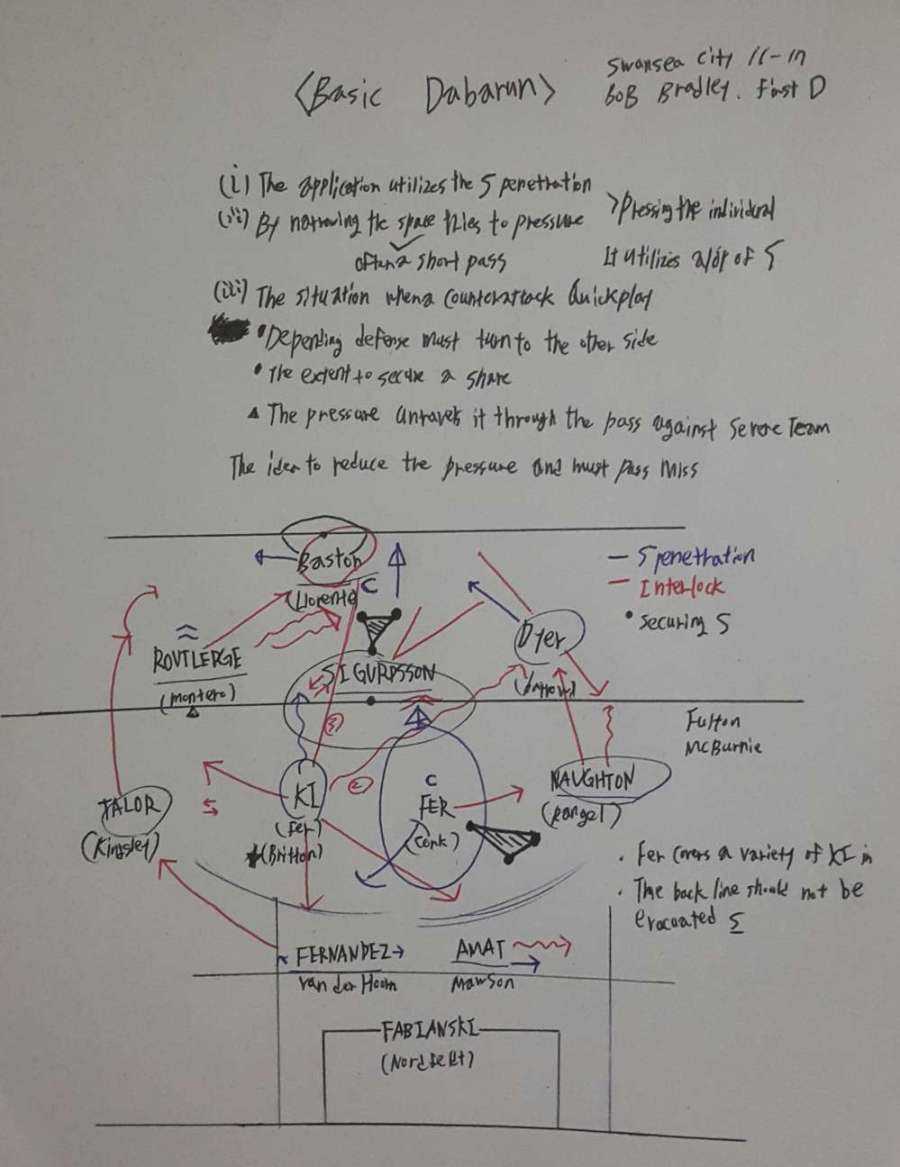 <Basic Dabarun>
Swansea City 16-17
BOB Bradley. First D
(i) The application utilizes the S penetration
(ii) By narrowing the space tries to pressure
>pressing the individual
often a short pass
It utilizes a/of of S
(iii) The situation when a counterattack Quickplay
• Depending defense must turn to the other side
• The extent to secure a share
▲ The pressure unravels it through the pass against Severe Team
The idea to reduce the pressure and must pass Miss
Baston
C
(Llorente)
— S penetration
— Interlock
• securing S
ROUTLERGE
(montero)
SIGURDSSON
Dyer
Fulton
McBurnie
③
②
TALOR
(Kingsley)
S
KI
(Fer)
(Britton)
C
FER
(Cork)
NAUGHTON
(Rangel)
. Fer covers a variety of KI in
. The back line should not be
evacuated S
FERNANDEZ
van der Hoorn
AMAT
Mawson
FABIANSKI
(Nordfeldt)